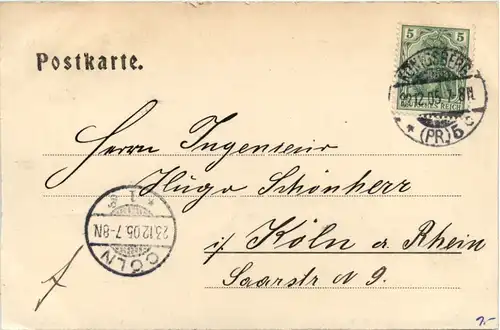 Postkarte.
5 5
DEUTSCHES REICH
KÖNIGSBERG
12.05. 7-8N
* (PR.) 5 c
Herrn Ingenieur
Hugo Schönherr
i/ Köln a. Rhein
Saarstr N 9.
* 1
23.12.05.7-8N
CÖLN